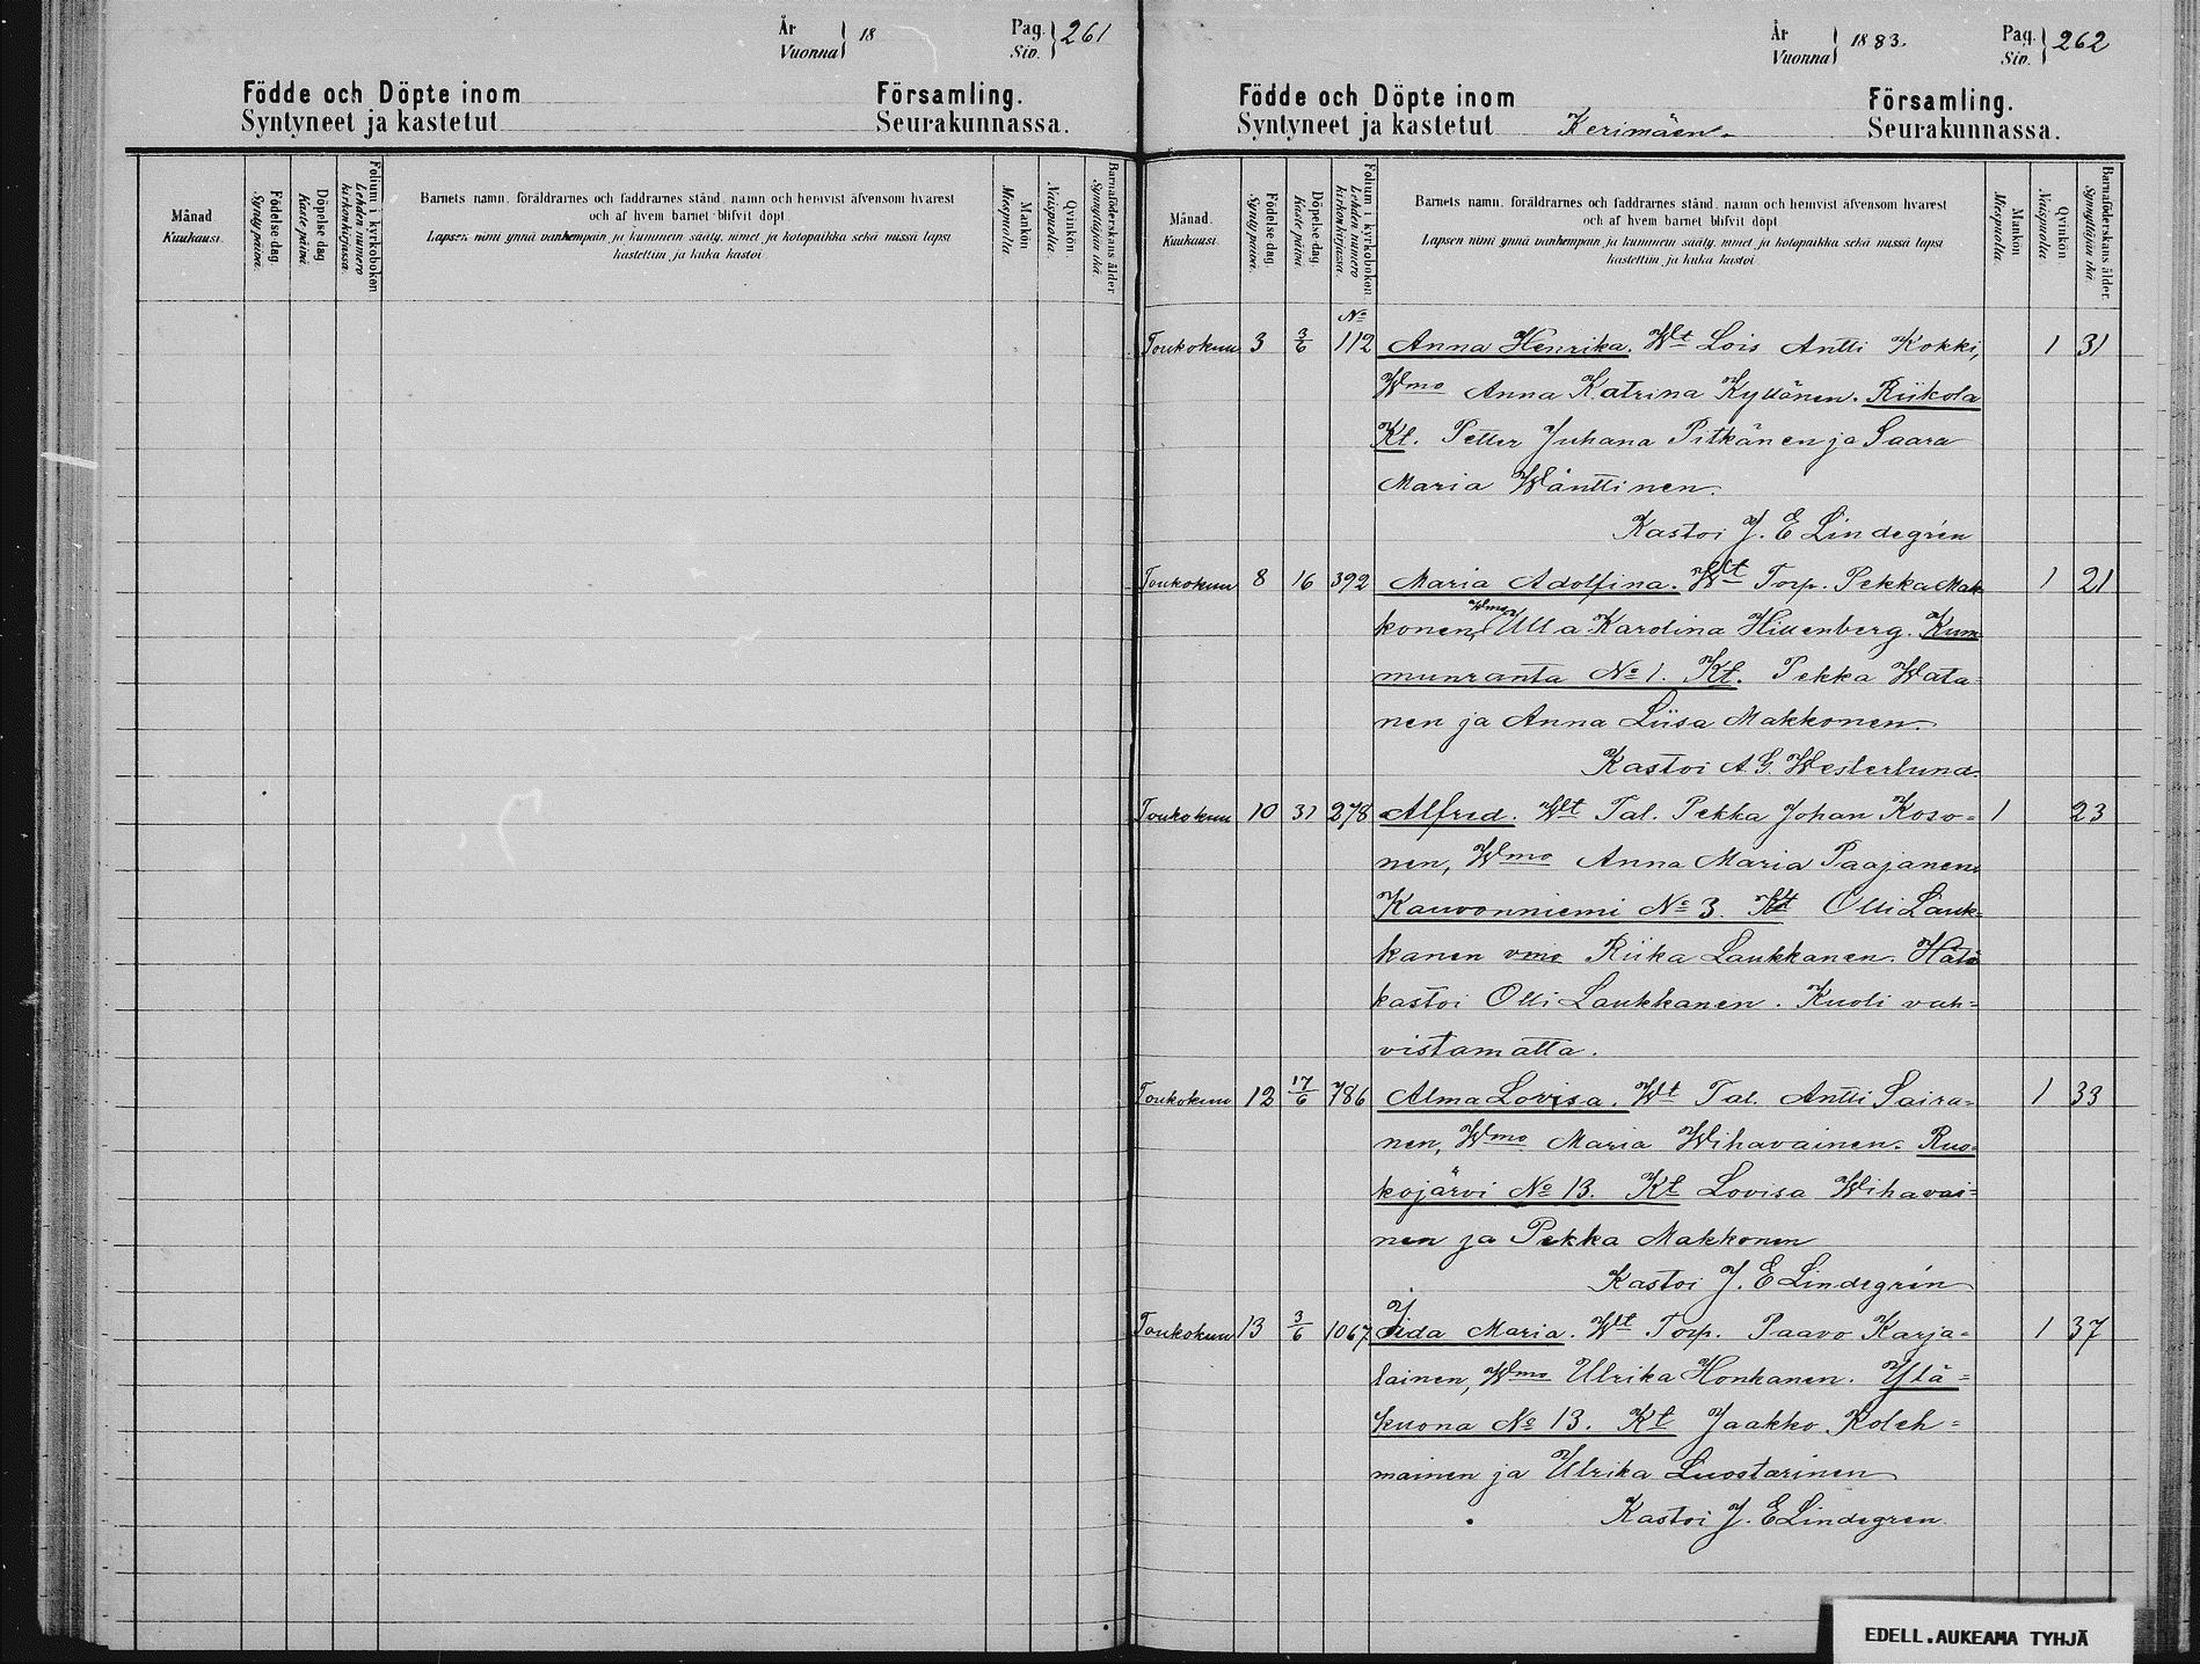 År
Vuonna } 18
Pag.
Siv. } 261
Födde och Döpte inom Församling.
Syntyneet ja kastetut Seurakunnassa.
Månad
Kuukausi.
Födelse dag.
Synty päivä.
Döpelse dag
Kaste päivä.
Folium i kyrkoboken
Lehden numero
kirkonkirjassa.
Barnets namn, föräldrarnes och faddrarnes stånd, namn och hemvist äfvensom hvarest
och af hvem barnet blifvit döpt.
Lapsen nimi ynnä vanhempain ja kummein sääty, nimet ja kotopaikka sekä missä lapsi
kastettiin ja kuka kastoi
Mankön
Miespuolia
Qvinkön.
Naispuolia.
Barnaföderskans ålder
Synnyttäjän ikä.
År
Vuonna } 1883.
Pag.
Siv. } 262
Födde och Döpte inom Församling.
Syntyneet ja kastetut Kerimäen Seurakunnassa.
Månad.
Kuukausi.
Födelse dag.
Synty päivä.
Döpelse dag.
Kaste päivä.
Folium i kyrkoboken
Lehden numero
kirkonkirjassa.
Barnets namn, föräldrarnes och faddrarnes stånd, namn och hemvist äfvensom hvarest
och af hvem barnet blifvit döpt.
Lapsen nimi ynnä vanhempain ja kummein sääty, nimet ja kotopaikka sekä missä lapsi
kastettiin ja kuka kastoi
Mankön
Miespuolia.
Qvinkön
Naispuolia.
Barnaföderskans ålder.
Synnyttäjän ikä.
No
Toukokuu 3 3/6 112 Anna Henrika. Wt Lois Antti Kokki, 1 31
Wmo Anna Katrina Kyllönen. Riikola
Kt. Petter Juhana Pitkänen ja Saara
Maria Wänttinen.
Kastoi J. E Lindegrén
Toukokuu 8 16 392 Maria Adolfina. Wt Torp. Pekka Mak- 1 21
konen, Wmo Ulla Karolina Hillenberg. Kum
munranta No 1. Kt. Pekka Wata=
nen ja Anna Liisa Makkonen.
Kastoi A. G. Westerlund.
Toukokuu 10 31 278 Alfred. Wt Tal. Pekka Johan Koso= 1 23
nen, Wmo Anna Maria Paajanen.
Kauvonniemi No 3. Kt Olli Lauk=
kanen vmo Riika Laukkanen. Hätä
kastoi Olli Laukkanen. Kuoli vah=
vistamatta.
Toukokuu 12 17/6 786 Alma Lovisa. Wt Tal. Antti Saira= 1 33
nen, Wmo Maria Wihavainen. Ruo=
kojärvi No 13. Kt Lovisa Wihavai=
nen ja Pekka Makkonen
Kastoi J. E Lindegrén
Toukokuu 13 3/6 1067 Iida Maria. Wt Torp. Paavo Karja= 1 37
lainen, Wmo Ulrika Honkanen. Ylä=
kuona No 13. Kt Jaakko Koleh=
mainen ja Ulrika Luostarinen
Kastoi J. E Lindegren
EDELL.AUKEAMA TYHJÄ